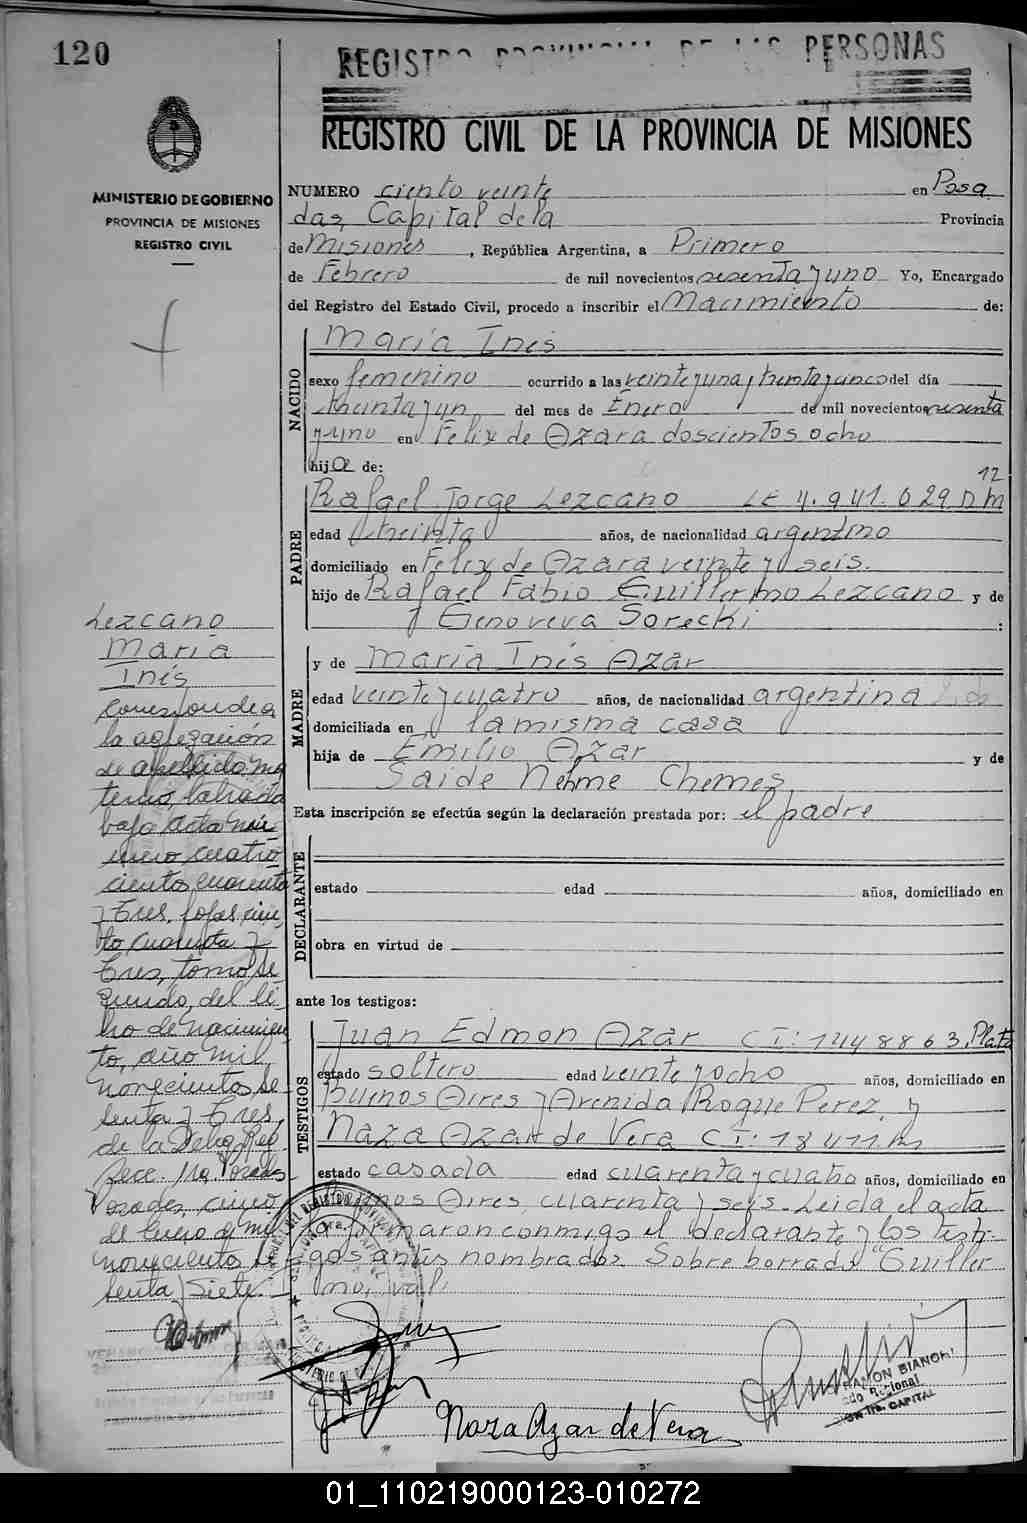 120
REGISTRO PROVINCIAL DE LAS PERSONAS
REGISTRO CIVIL DE LA PROVINCIA DE MISIONES
MINISTERIO DE GOBIERNO
PROVINCIA DE MISIONES
REGISTRO CIVIL
NUMERO ciento veinte en Posa
das, Capital de la Provincia
de Misiones, República Argentina, a Primero
de Febrero de mil novecientos sesenta y uno Yo, Encargado
del Registro del Estado Civil, procedo a inscribir el Nacimiento de:
NACIDO
María Inés
sexo femenino ocurrido a las veinte y una y treinta y cinco del día
treinta y un del mes de Enero de mil novecientos sesenta
y uno en Felix de Azara doscientos ocho
hija de:
PADRE
12
Rafael Jorge Lezcano LE 4.941.029 D m
edad treinta años, de nacionalidad argentino
domiciliado en Felix de Azara veinte y seis.
hijo de Rafael Fabio Guillermo Lezcano y de
y Genoveva Sorecki :
MADRE
y de María Inés Azar
edad veinte y cuatro años, de nacionalidad argentina
domiciliada en la misma casa
hija de Emilio Azar y de
Saide Nehme Chemes
Esta inscripción se efectúa según la declaración prestada por: el padre
DECLARANTE
estado edad años, domiciliado en
obra en virtud de
ante los testigos:
TESTIGOS
Juan Edmon Azar C I: 1448863. Plata
estado soltero edad veinte y ocho años, domiciliado en
Buenos Aires y Avenida Roque Perez, y
Naza Azar de Vera C I: 18411. m
estado casada edad cuarenta y cuatro años, domiciliado en
Buenos Aires, cuarenta y seis. Leida el acta
la firmaron conmigo el declarante y los testi-
gos antes nombrados. Sobre borrado "Guiller
mo, vale
Lezcano
María
Inés
Corresponde a
la agregación
de apellido ma
terno, labrada
bajo acta nú
mero cuatro
cientos cuarenta
y Tres, fojas cien
to cuarenta y
Tres, tomo se
gundo, del li
bro de nacimien
to, año mil
novecientos se
senta y Tres,
de la Deleg. Reg.
Secc. 1ra. Posadas
Posadas, cinco
de Enero de mil
novecientos se
senta y Siete.
Naza Azar de Vera
RAMON BIANCHI
CAPITAL
01_110219000123-010272